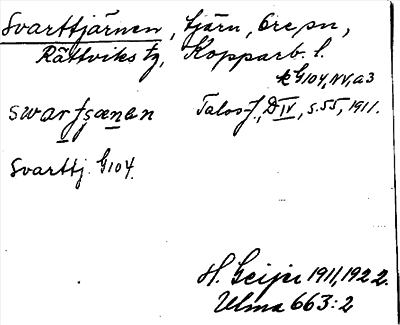 Svarttjärnen, tjärn, Ore sn,
Rättviks tg, Kopparb. l.
k G104, NV, a3
swartʃænən Talosf., D IV, s. 55, 1911.
Svarttj. G104.
H. Geijer 1911, 1922.
Ulma 663:2